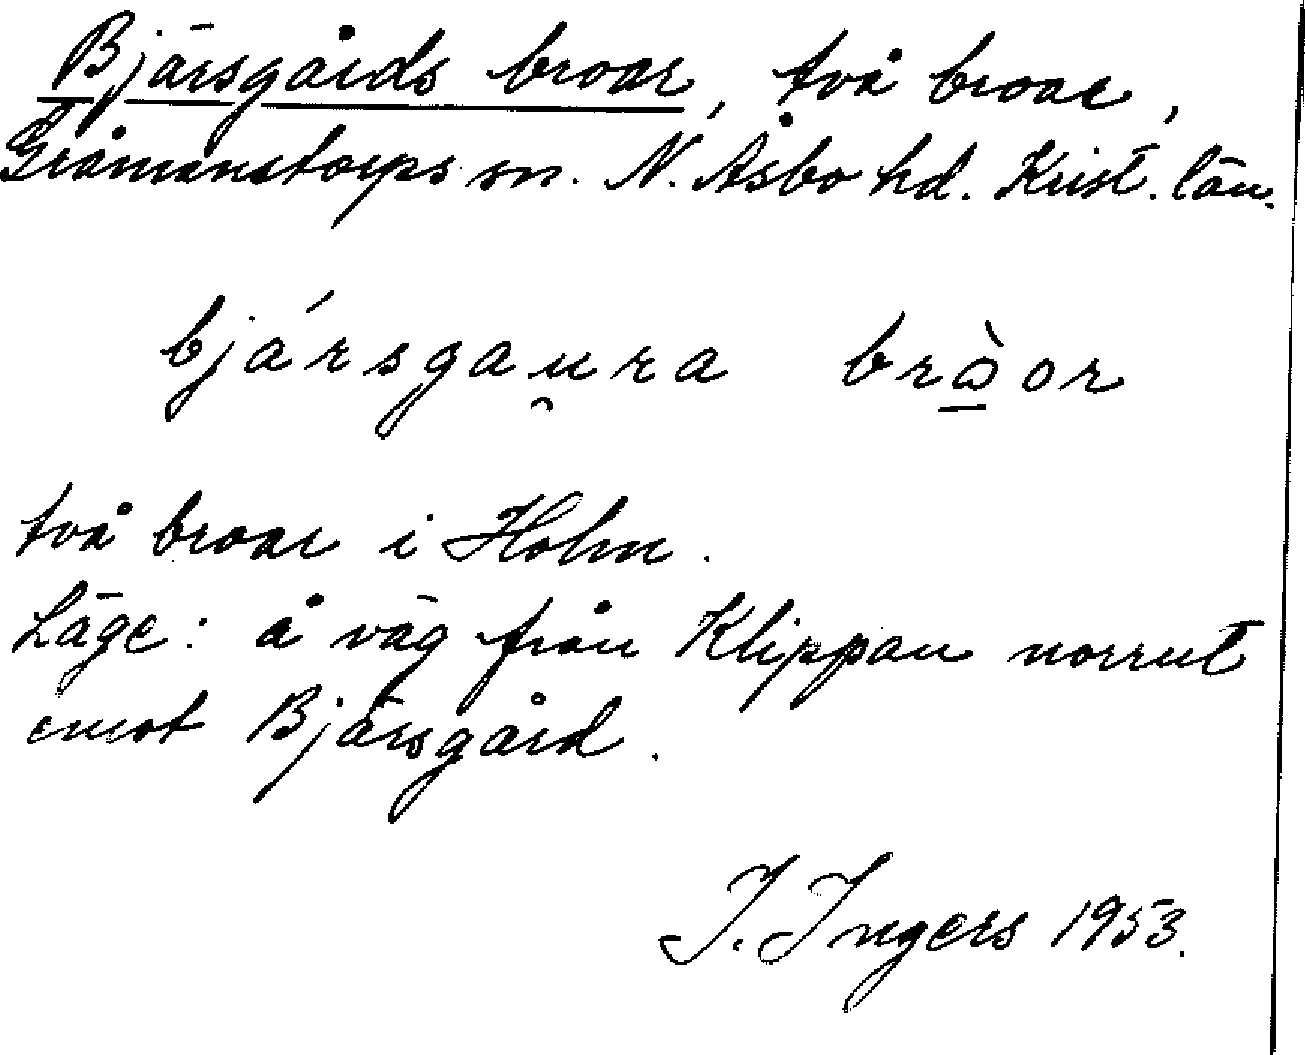 Bjärsgårds broar, två broar,
Gråmanstorps sn. N. Åsbo hd. Krist. län.
bjársgau̯ra brὼ̱or
två broar i Holm.
Läge: å väg från Klippan norrut
emot Bjärsgård.
I. Ingers 1953.